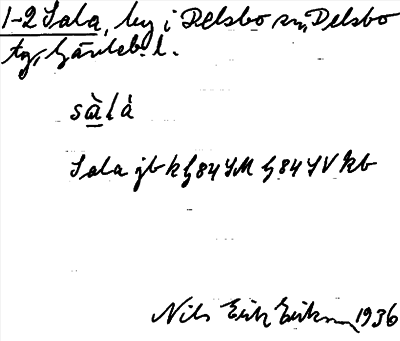 1-2 Sala, by i Delsbo sn, Delsbo
tg, Gävleb. l.
sàlà
Sala jb k h84 SM h84 SV kb
Nils Erik Eriksson 1936